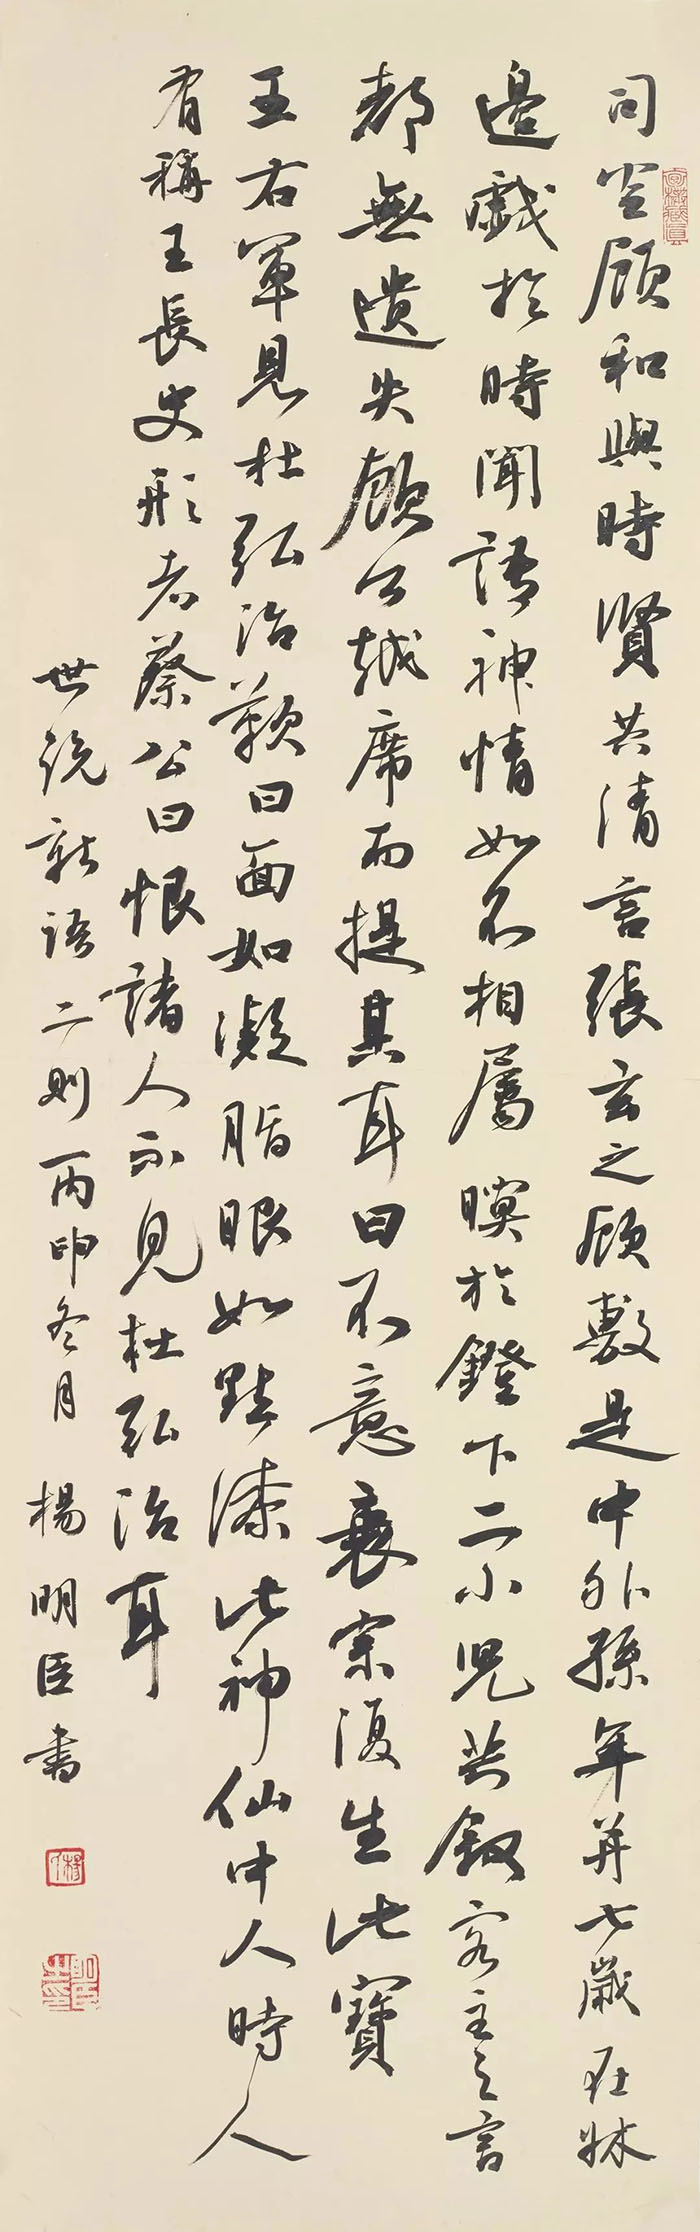 司空顾和與時賢共清言張玄之顾敷是中外孫年并七歲在牀
邊戯於時聞語神情如不相屬瞑於鐙下二小兒共叙客主之言
都無遗失顾公越席而提其耳曰不意衰宗復生此寶
王右軍見杜弘治歎曰面如凝脂眼如點漆此神仙中人時人
有稱王長史形者蔡公曰恨諸人不見杜弘治耳
世说新語二则丙申冬月 楊明臣書